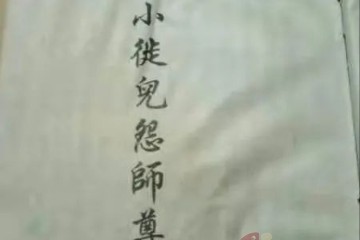 小徙兒怨師尊